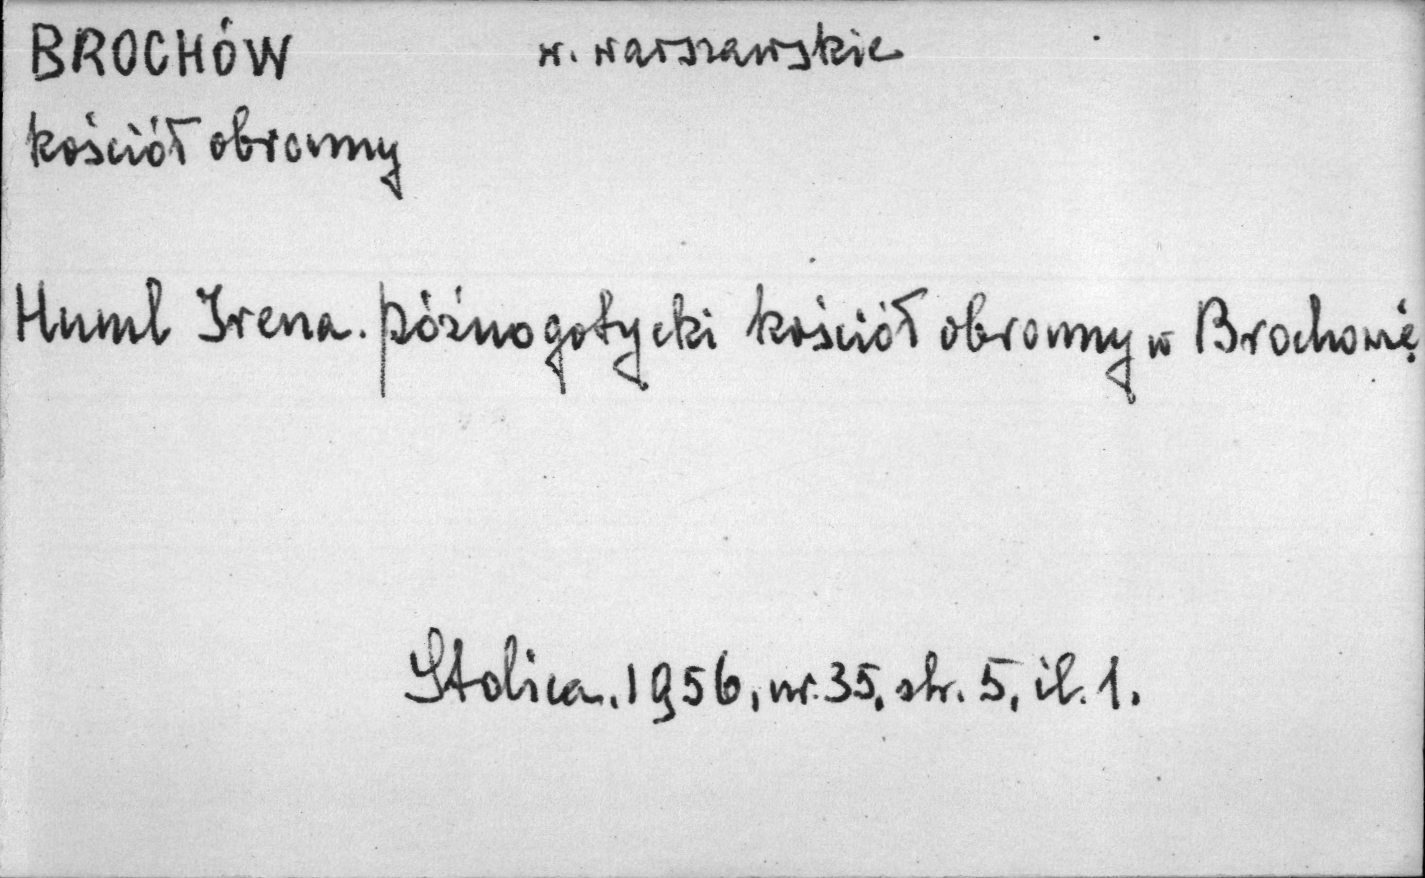 BROCHÓW w. warszawskie
kościół obronny
Huml Irena. późnogotycki kościół obronny w Brochowie.
Stolica. 1956, nr. 35, str. 5, il. 1.